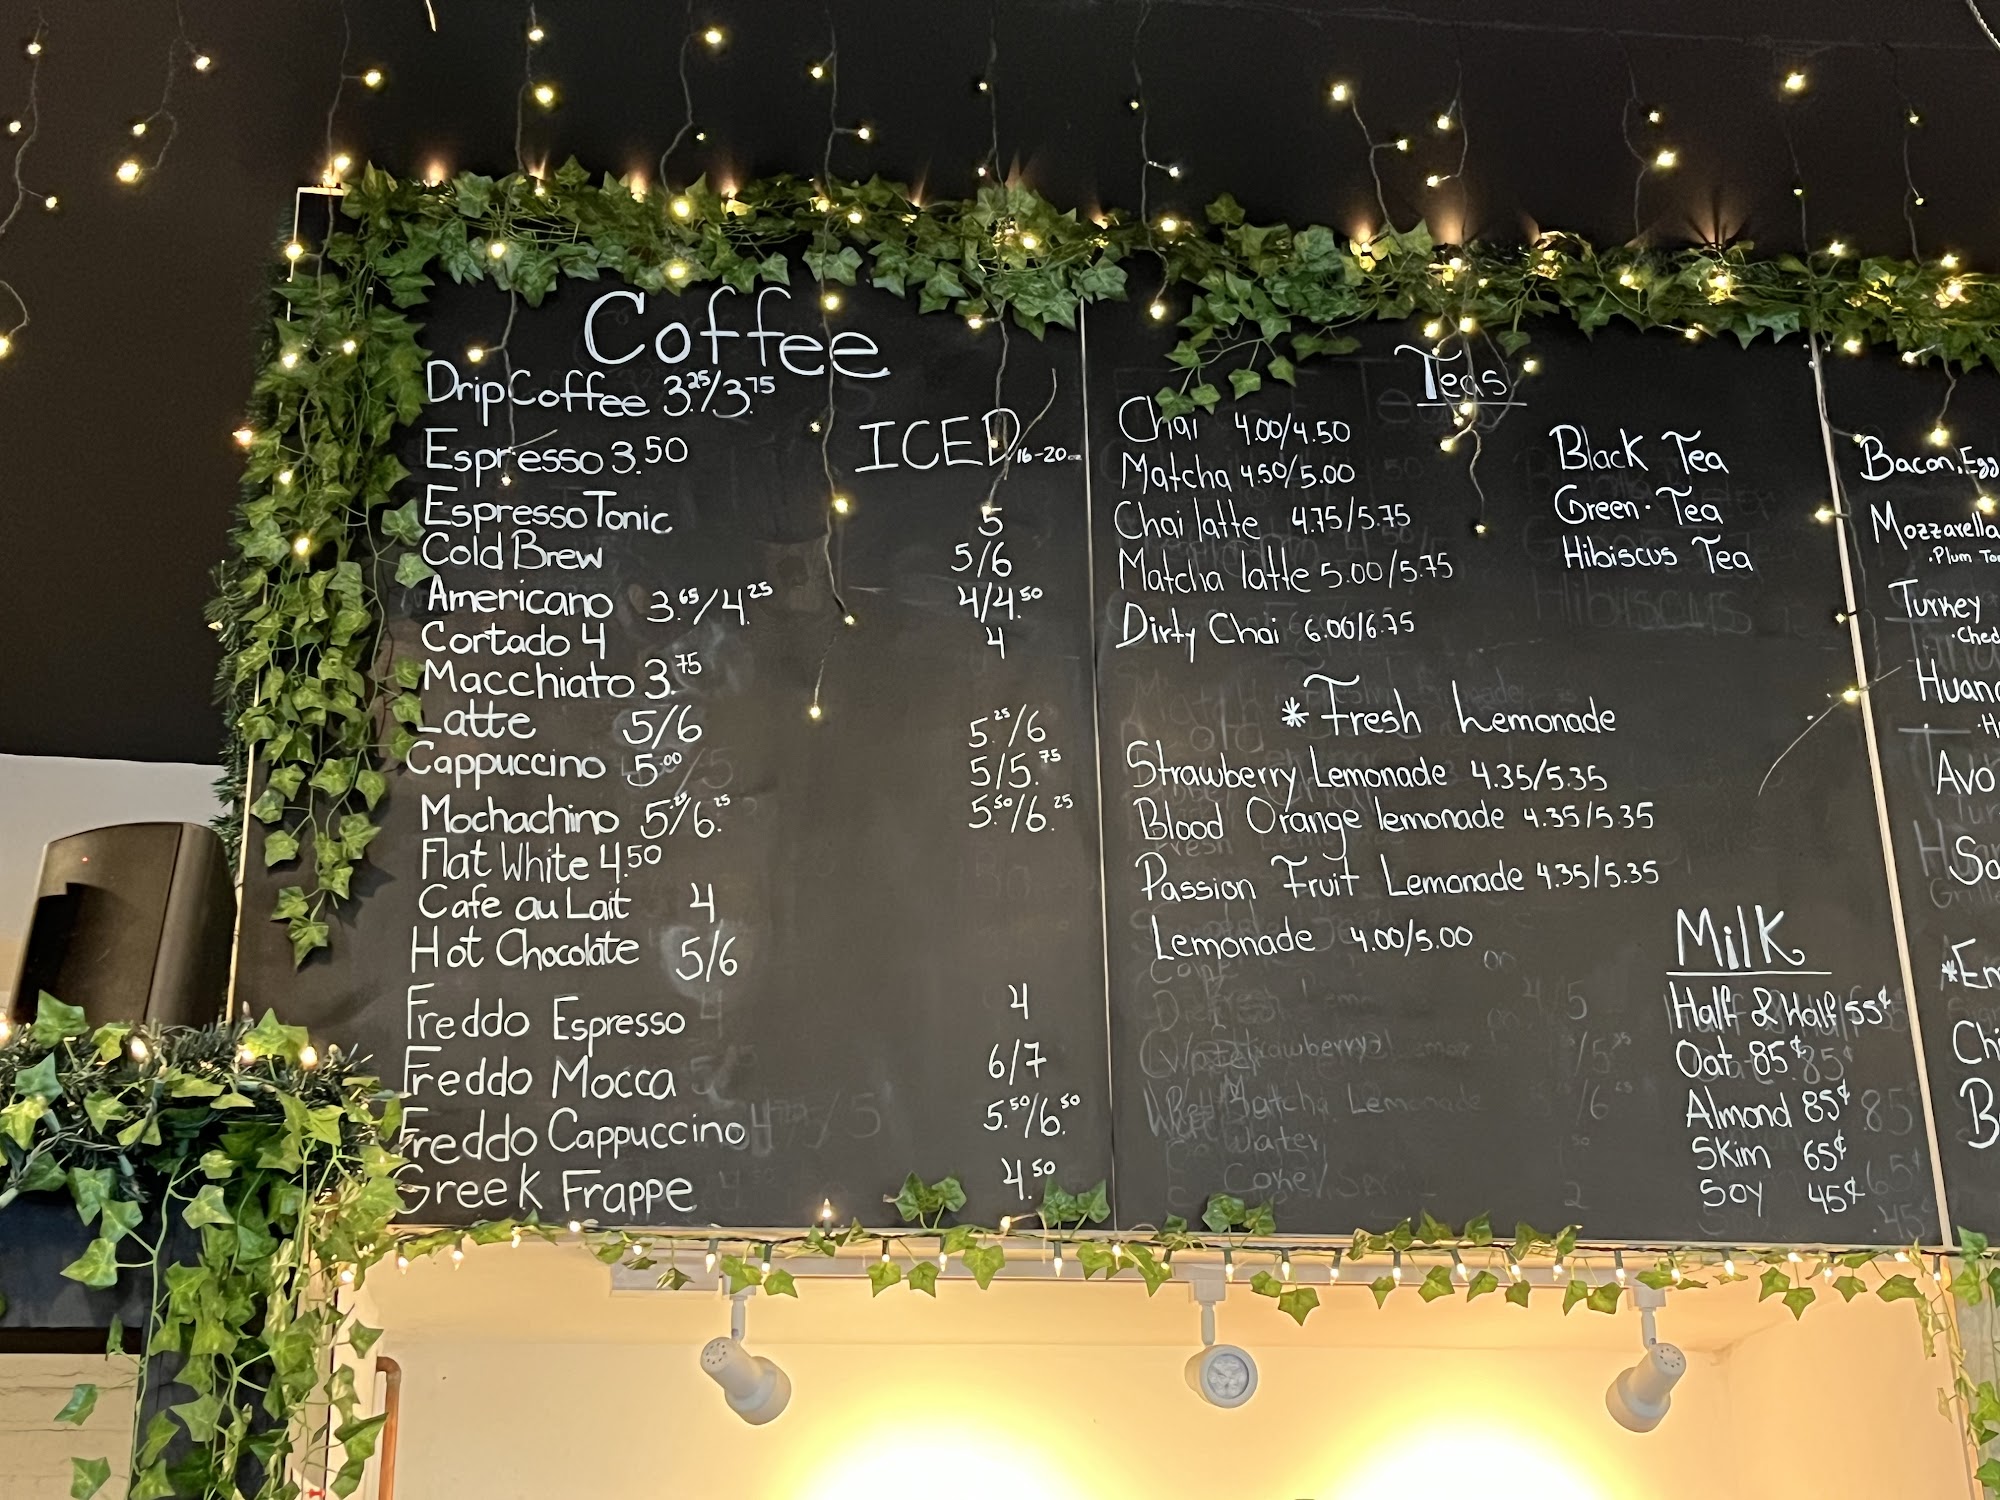 Coffee
Drip Coffee 3.25/3.75
ICED 16-20oz
Espresso 3.50
Espresso Tonic 5
Cold Brew 5/6
Americano 3.65/4.25 4/4.50
Cortado 4 4
Macchiato 3.75
Latte 5/6 5.25/6
Cappuccino 5.00 5/5.75
Mochachino 5.25/6.25 5.50/6.25
Flat White 4.50
Cafe au Lait 4
Hot Chocolate 5/6
Freddo Espresso 4
Freddo Mocca 6/7
Freddo Cappuccino 5.50/6.50
Greek Frappe 4.50
Teas
Chai 4.00/4.50
Matcha 4.50/5.00
Chai latte 4.75/5.75
Matcha latte 5.00/5.75
Dirty Chai 6.00/6.75
Black Tea
Green Tea
Hibiscus Tea
*Fresh Lemonade
Strawberry Lemonade 4.35/5.35
Blood Orange lemonade 4.35/5.35
Passion Fruit Lemonade 4.35/5.35
Lemonade 4.00/5.00
Milk
Half & Half 55¢
Oat 85¢
Almond 85¢
Skim 65¢
Soy 45¢
Bacon, Egg
Mozzarella
·Plum
Turkey
Avo